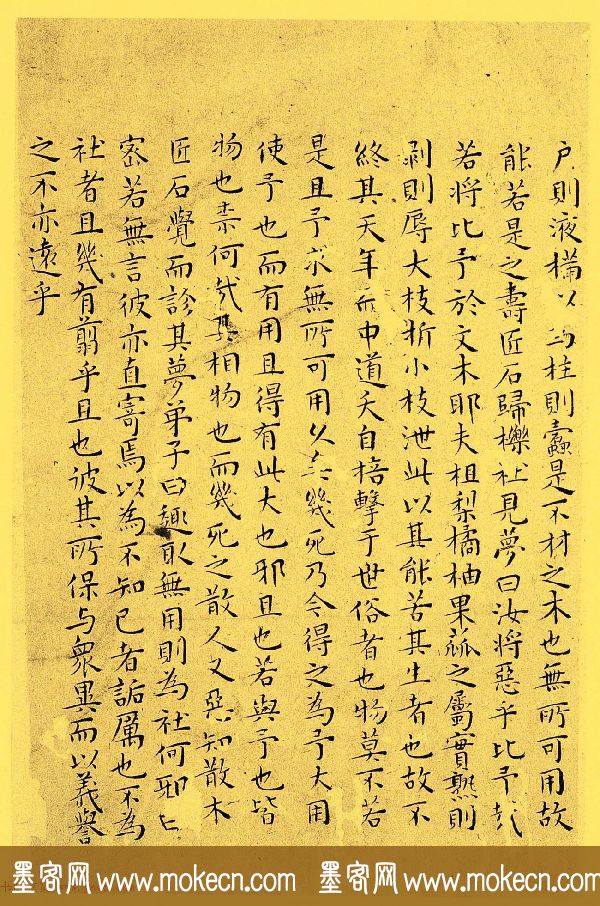 户則液樠以為柱則蠹是不材之木也無所可用故
能若是之壽匠石歸櫟社見夢曰汝將惡乎比予哉
若將比予於文木耶夫柤梨橘柚果蓏之屬實熟則
剥則辱大枝折小枝泄此以其能苦其生者也故不
終其天年而中道夭自掊擊于世俗者也物莫不若
是且予求無所可用久矣幾死乃今得之為予大用
使予也而有用且得有此大也邪且也若與予也皆
物也柰何哉其相物也而幾死之散人又惡知散木
匠石覺而診其夢弟子曰趣取無用則為社何邪曰
密若無言彼亦直寄焉以為不知已者詬厲也不為
社者且幾有翦乎且也彼其所保与衆異而以義譽
之不亦遠乎
墨客网 www.mokecn.com 墨客网 www.mokecn.com